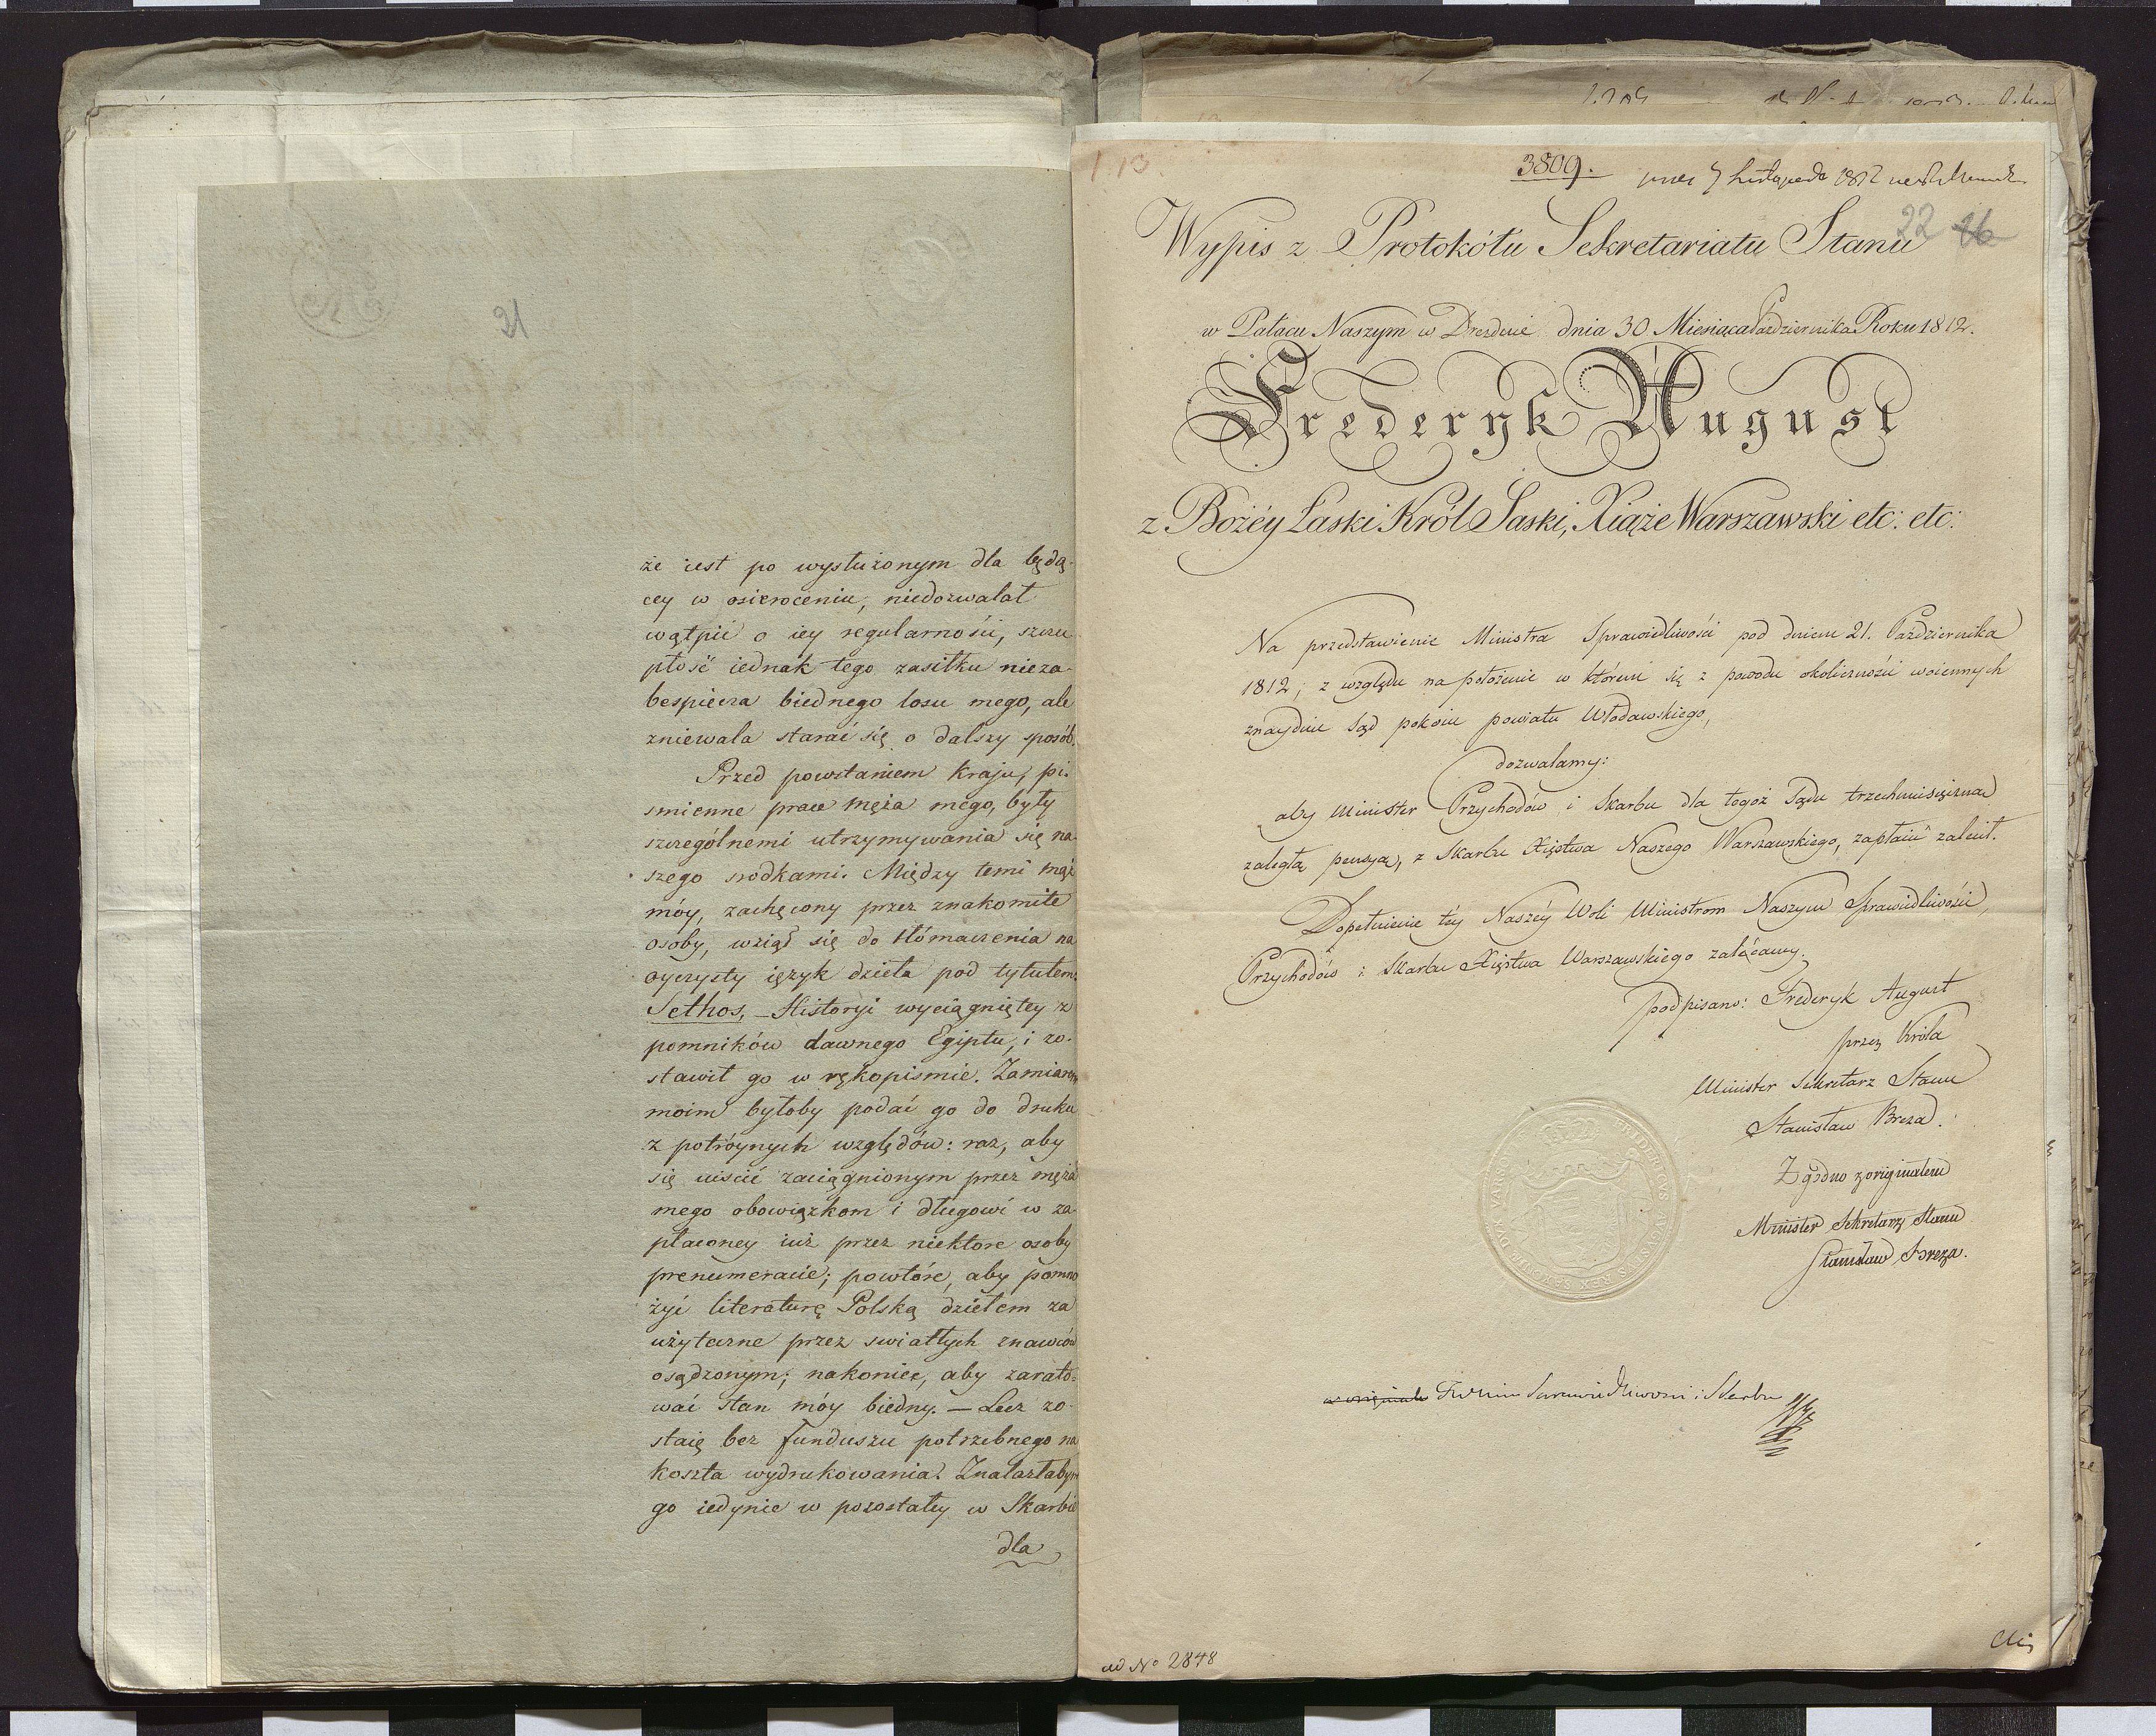 21
że iest po wysłużonym dla będą-
cey w osieroceniu, niedozwalał
wątpić o iey regularności, szczu
płość iednak tego zasiłku nieza-
bespiecza biednego losu mego, ale
zniewala starać się o dalszy sposób.
Przed powstaniem kraju, pi-
smienne prace męża mego, były
szczególnemi utrzymywania się na-
szego srodkami. Między temi mąż
móy, zachęcony przez znakomite
osoby, wziął się do tłómaczenia na
oyczysty ięzyk dzieła pod tytułem:
Sethos, – Historyi wyciągniętey z
pomników dawnego Egiptu, i zo-
stawił go w rękopismie. Zamiarem
moim byłoby podać go do druku
z potróynych względów: raz, aby
się uiścić zaciągnionym przez męża
mego obowiązkom i długowi w za-
płaconey iuż przez niektore osoby
prenumeracie; powtóre, aby pomno
żyć literaturę Polską dziełem za
użyteczne przez swiatłych znawców
osądzonym; nakoniec, aby zarato-
wać stan móy biedny. – Lecz zo-
staię bez funduszu potrzebnego na
koszta wydrukowania. Znalazłabym
go iedynie w pozostałey w Skarbie
dla
113.
3809.
7 Listopada 1812
22 26
Wypis z Protokółu Sekretariatu Stanu
w Pałacu Naszym w Dreźnie dnia 30 Miesiąca Października Roku 1812.
Frederyk August
z Bożéy Łaski Król Saski, Xiąże Warszawski etc: etc:
Na przedstawienie Ministra Sprawiedliwości pod dniem 21. Października
1812; z względu na położenie w którem się z powodu okoliczności woiennych
znayduie Sąd pokoiu powiatu Włodawskiego,
dozwalamy:
aby Minister Przychodów i Skarbu dla tegoż Sądu trzechmiesięczną
zaległą pensyą, z Skarbu Xięstwa Naszego Warszawskiego, zapłacić zalecił.
Dopełnienie téy Naszéy Woli Ministrom Naszym Sprawiedliwości,
Przychodów i Skarbu Xięstwa Warszawskiego zalécamy.
podpisano: Frederyk August
przez Króla
Minister Sekretarz Stanu
Stanisław Breza.
Zgodno z originałem
Minister Sekretarz Stanu
Stanisław Breza.
w originale Sprawiedliwosci i Skarbu
ad No 2848